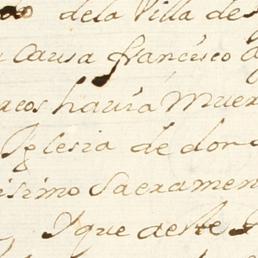 dela Villa de
Causa francisco
hauia Muer
Iglesia de don
isimo Sacramen
Ique deste